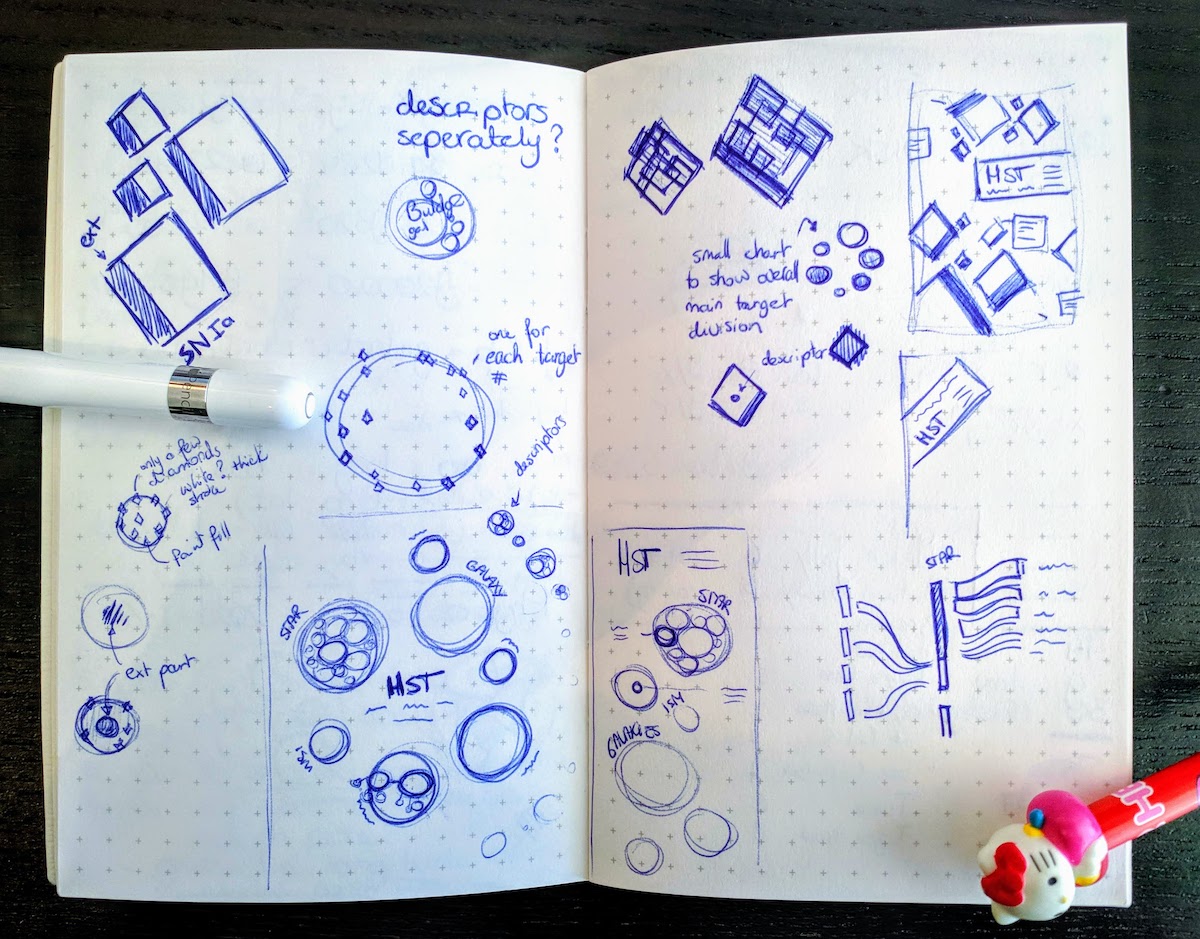 descriptors
seperately?
ext
SNIa
one for
each target
#
descriptors
only a few
diamonds
white? thick
stroke
Paint fill
ext part
GALAXY
STAR
HST
ism
small chart
to show overall
main target
division
descriptor
HST
HST
HST
STAR
ISM
GALAXIES
STAR